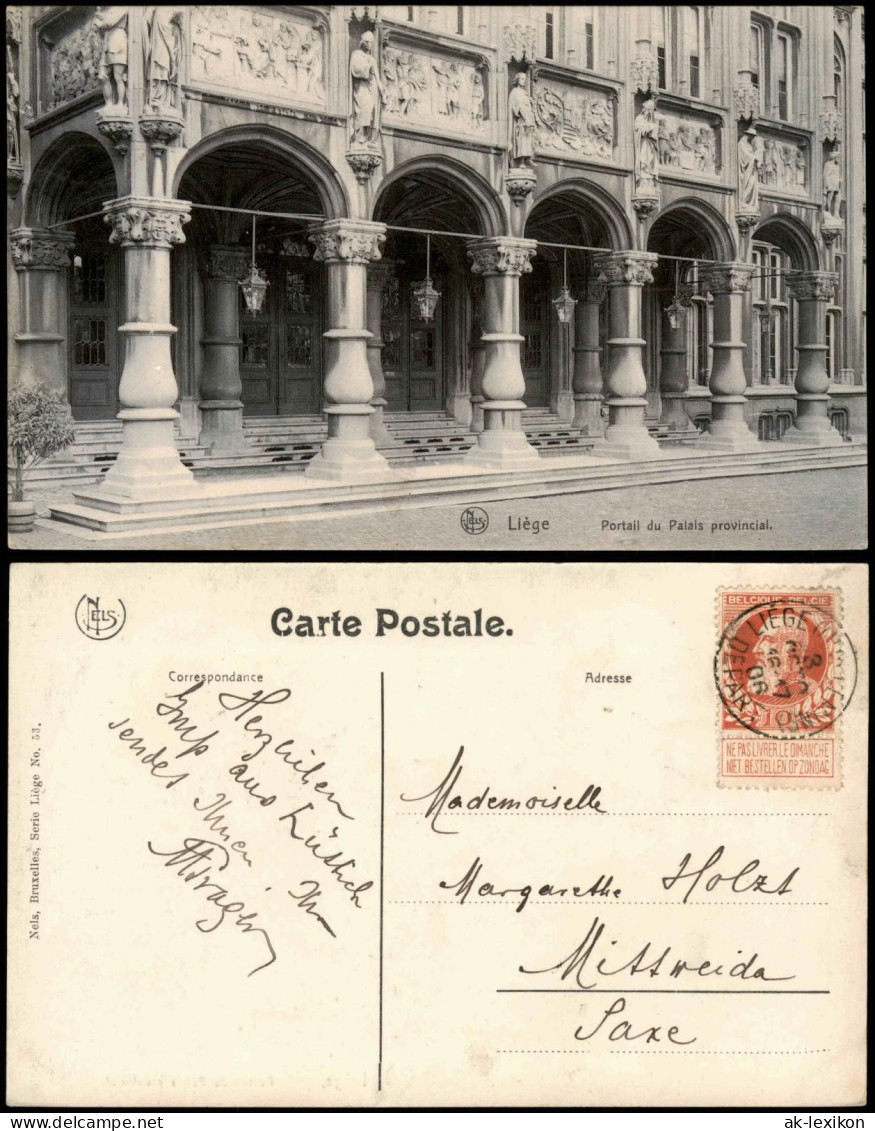 NELS
Liège
Portail du Palais provincial.
NELS
Carte Postale.
Correspondance
Adresse
BELGIQUE·BELGIË
LIÉGE
DEPART
06
10
NE PAS LIVRER LE DIMANCHE
NIET BESTELLEN OP ZONDAG
Nels, Bruxelles, Serie Liège No. 53.
Herzlichen
aus Lüttich
sendet Ihnen Ihr
Mademoiselle
Margarethe Holzt
Mittweida
Saxe
ak-lexikon